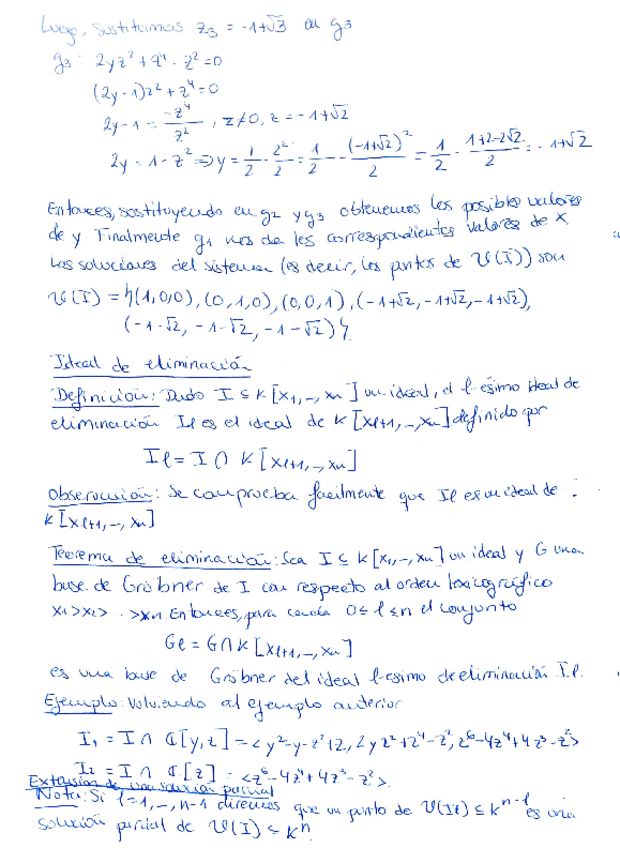 Luego, sustituimos z₃ = -1+√3 en g₃
g₃: 2yz² + z⁴ - z² = 0
(2y-1)z² + z⁴ = 0
2y-1 = -z⁴/z², z≠0, z = -1+√2
2y = 1 - z² ⇒ y = 1/2 - z²/2 = 1/2 - (-1+√2)²/2 = 1/2 - (1+2-2√2)/2 = -1+√2
Entonces, sustituyendo en g₂ y g₃ obtenemos los posibles valores
de y. Finalmente g₁ nos da los correspondientes valores de x.
Las soluciones del sistema (es decir, los puntos de V(I)) son
V(I) = {(1,0,0), (0,1,0), (0,0,1), (-1+√2, -1+√2, -1+√2),
(-1-√2, -1-√2, -1-√2)}.
Ideal de eliminación
Definición: Dado I ⊆ K[x₁,-,xₙ] un ideal, el l-ésimo ideal de
eliminación Iℓ es el ideal de K[xℓ₊₁,-,xₙ] definido por
Iℓ = I ∩ K[xℓ₊₁,-,xₙ]
Observación: Se comprueba facilmente que Iℓ es un ideal de
K[xℓ₊₁,-,xₙ]
Teorema de eliminación: Sea I ⊆ K[x₁,-,xₙ] un ideal y G una
base de Gröbner de I con respecto al orden lexicográfico
x₁>x₂> .. >xₙ. Entonces, para cada 0≤ℓ≤n el conjunto
Gℓ = G ∩ K[xℓ₊₁,-,xₙ]
es una base de Gröbner del ideal ℓ-esimo de eliminación Iℓ.
Ejemplo: Volviendo al ejemplo anterior
I₁ = I ∩ ℂ[y,z] = <y²-y-z²+z, 2yz²+z⁴-z², z⁶-4z⁴+4z³-z²>
I₂ = I ∩ ℂ[z] = <z⁶-4z⁴+4z³-z²>.
Extensión de una solución parcial
Nota: Si ℓ=1,-,n-1 diremos que un punto de V(Iℓ) ⊆ Kⁿ⁻ℓ es una
solución parcial de V(I) ⊆ Kⁿ.